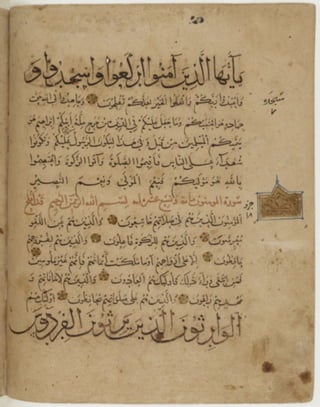 يا أيها الذين آمنوا اركعوا واسجدوا و
واعبدوا ربكم وافعلوا الخير لعلكم تفلحون وجاهدوا في الله حق
جهاده هو اجتبيكم وما جعل عليكم في الدين من حرج ملة أبيكم إبراهيم هو
سميكم المسلمين من قبل وفي هذا ليكون الرسول شهيدا عليكم وتكونوا
شهداء على الناس فأقيموا الصلوة وآتوا الزكوة واعتصموا
بالله هو موليكم فنعم المولى ونعم النصير
سورة المؤمنون مائة عشر آية بسم الله الرحمن الرحيم قد أفلح
المؤمنون الذين هم في صلاتهم خاشعون والذين هم عن اللغو
معرضون والذين هم للزكوة فاعلون والذين هم لفروجهم
حافظون إلا على أزواجهم أو ما ملكت أيمانهم فإنهم غير ملومين
فمن ابتغى وراء ذلك فأولئك هم العادون والذين هم لأماناتهم و
عهدهم راعون والذين هم على صلواتهم يحافظون أولئك هم
الوارثون الذين يرثون الفردوس
سجدة
جزو